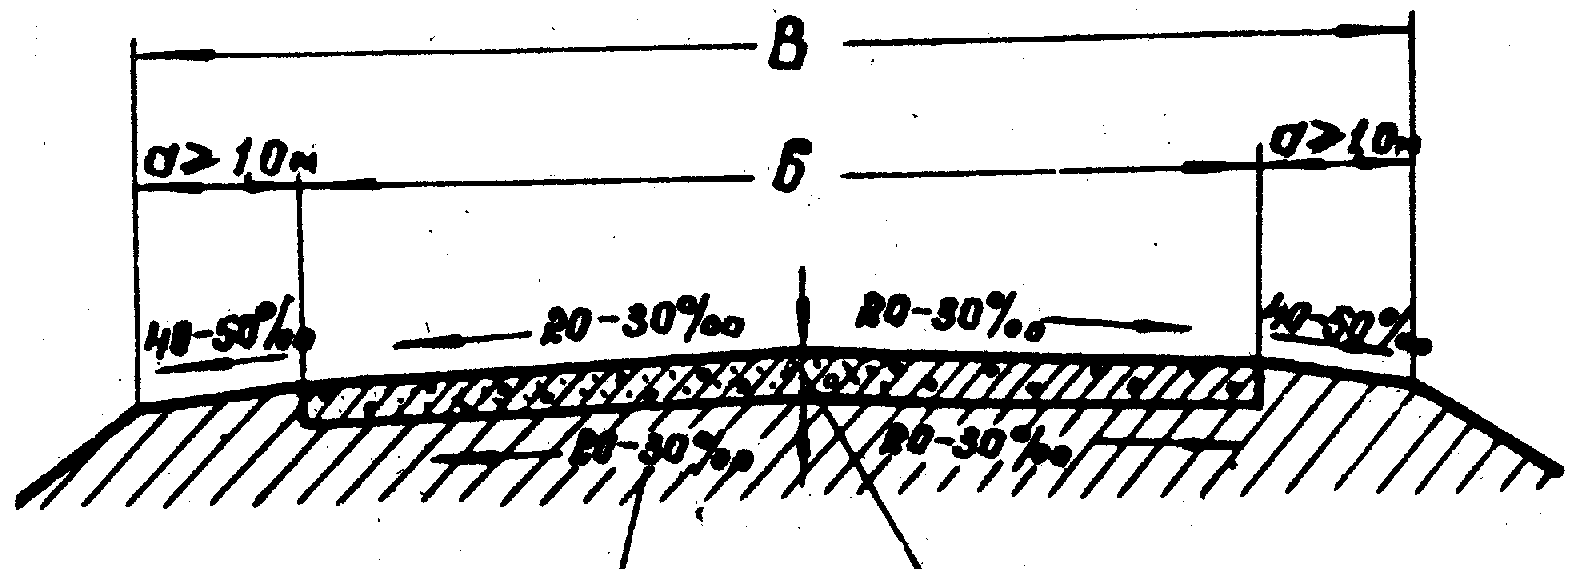 В
а≥1,0м Б а≥1,0м
40-50‰ 20-30‰ 20-30‰ 40-50‰
20-30‰ 20-30‰